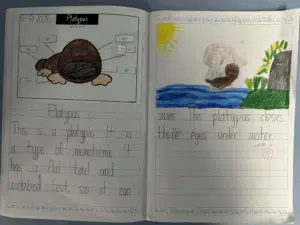 Platypus
Platypus
This is a platypus It is
a type of monotreme. It
has a flat tail and
webbed feet so it can
swim. The platypus closes
their eyes under water.